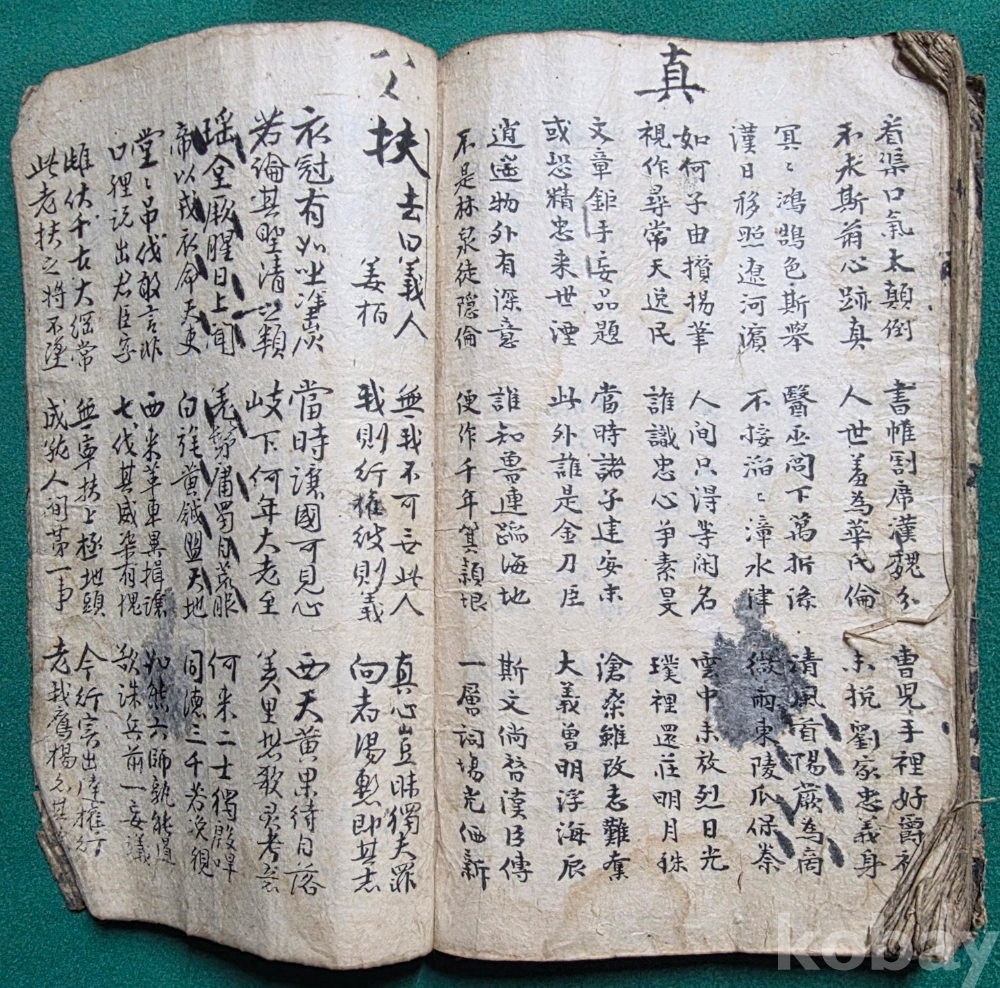 真
看渠口氣太顛倒 書帷割席漢魏分 曹兒手裡好爵
不失斯翁心跡真 人世羞為華氏倫 未挽劉家忠義身
冥〻鴻鵠色斯舉 醫巫閭下萬折條 清風首陽蕨為商
漢日移照遼河濱 不接滔〻漳水津 微雨東陵瓜保秦
如何子由攢揚筆 人間只得等閑名 雲中未放烈日光
視作尋常天逸民 誰識忠心爭素旻 璞裡還莊明月珠
文章鉅手妄品題 當時諸子建安末 滄桑雖改志難奪
或恐精忠來世湮 此外誰是金刀臣 大義曾明浮海辰
逍遙物外有深意 誰知魯連蹈海地 斯文倘替漢臣傳
不是林泉徒隱倫 便作千年箕潁垠 一層詞場光価新
扶去曰義人 無我不可無此人 真心豈昧獨夫罪
姜栢 我則行權彼則義 向者湯慙即其志
衣冠有如坐塗炭 當時讓國可見心 西天黃果待日落
若論其聖清以類 岐下何年大老至 羑里悲歌灵考
瑶全厥腥日上聞 髳庸蜀自荒服 何來二士獨殿
帝以戎衣命天吏 白旄黃鉞盟天地 同德三千若
堂〻吊伐敢言非 西來革車異揖讓 如熊六師孰能遏
口裡說出君臣字 七伐其威有愧 欲誅兵前一妄議
雖伏千古大綱常 無寧扶上極地頭 今行
此老扶之將不墜 成就人間第一事 老我鷹揚